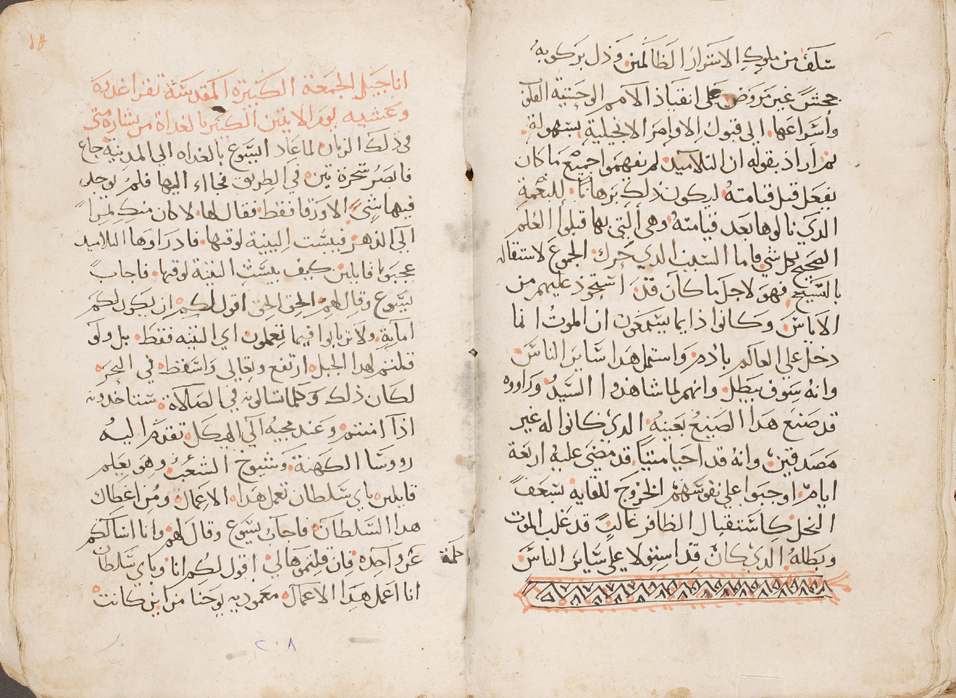 سلف من ملوك الاشرار الظالمين وذل بركوبه
جحش غير مروض على انقياد الامم الى حتيه القلق
واسراعها الى قبول الاوامر الانجيليه بسهولة
ثم اراد بقوله ان التلاميذ لم يفهموا جميع ما كان
يفعل قبل قيامته ليكون ذلك برهانا للنعمة
الذي نالوها بعد قيامته وهي التي بها قبلوا العلم
الصحيح بكل شي فاما السبب الذي حرك الجموع لاستقباله
بالتسبيح فهو لاجل ما كان قد استحوذ عليهم من
الاياس وكانوا دايما يسمعون ان الموت انما
دخل على العالم بادم واستمل هدا ساير الناس
وانه سوف يبطل وانهم لما شاهدوا السيد وراوه
قد صنع هدا الصنيع بعينه الدي كانوا له غير
مصدقين وانه قد احيا ميتا قد مضى عليه اربعة
ايام اوجبوا على نفوسهم الخروج للقايه بسعف
النخل كاستقبال الظافر غالب قد غلب الموت
وبطله الدي كان قد استولا على ساير الناس
اناجيل الجمعة الكبيرة المقدسة تقرا غدية
وعشيه يوم الاثنين الكبير بالغداة من بشارة متى
في ذلك الزمان لما عاد اليسوع بالغداه الى المدينة جاع
فابصر شجرة تين في الطريق فجاء اليها فلم يوجد
فيها شي الا ورقا فقط فقال لها لا كان منك ثمرا
الى الدهر فيبست التينة لوقتها فاد راوها التلاميد
عجبوا قايلين كيف يبست التينة لوقتها فاجاب
يسوع وقال لهم الحق الحق اقول لكم ان يكون لكم
امانة ولا ترتابوا فيما تعملون اي التينه فقط بل ولو
قلتم لهدا الجبل ارتفع وتعالى واسقط في البحر
لكان ذلك وكلما سالتوه في الصلاة ستاخدونه
اذا امنتم وعند مجيه الى الهيكل تقدم اليه
رووسا الكهنة وشيوخ الشعب وهو يعلم
قايلين باي سلطان تعمل هدا الاعمال ومن اعطاك
هدا السلطان فاجاب يسوع وقال لهم وانا اسالكم
عن واحده فان قلتموها لي اقول لكم انا وباي سلطان
انا اعمل هدا الاعمال معمودية يوحنا من اين كانت
كلمة
٢٠٨